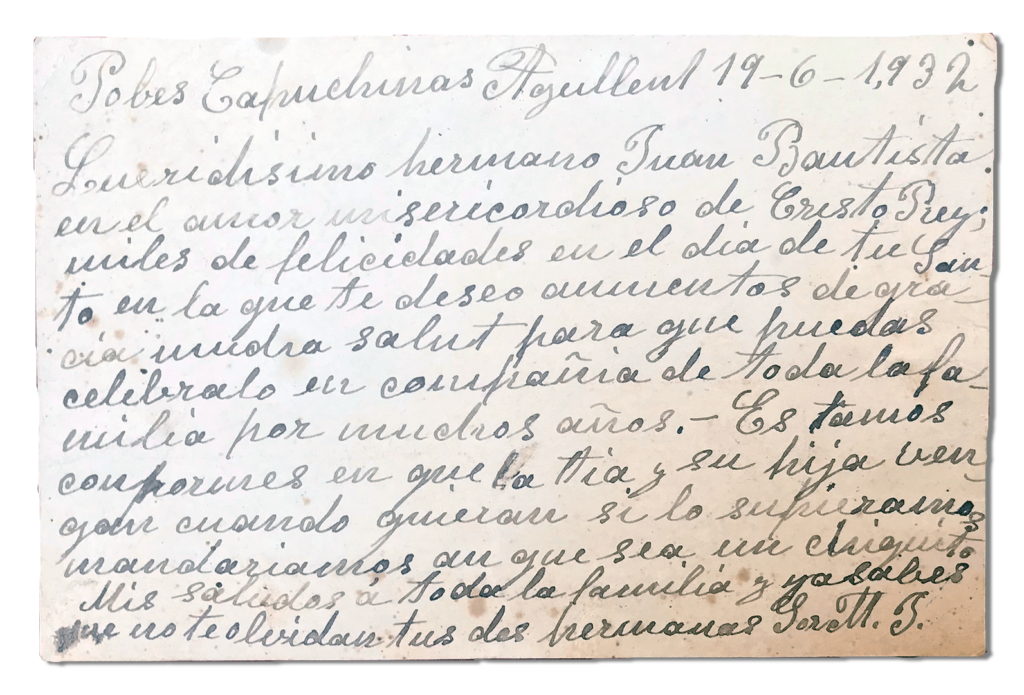 Pobes Capuchinas Agullent 19-6-1,932
Queridisimo hermano Juan Bautista
en el amor misericordioso de Cristo Rey;
miles de felicidades en el dia de tu San-
to en la que te deseo aumentos de gra-
cia mudra salut para que puedas
celebralo en compañia de toda la fa-
milia por muchos años.- Es tamos
conformes en que la tia y su hija ven
gan cuando quieran si lo supieramos
mandariamos an que sea un chiquito
Mis saludos á toda la familia y ya sabes
que no te olvidan tus dos hermanas Sor M. T.